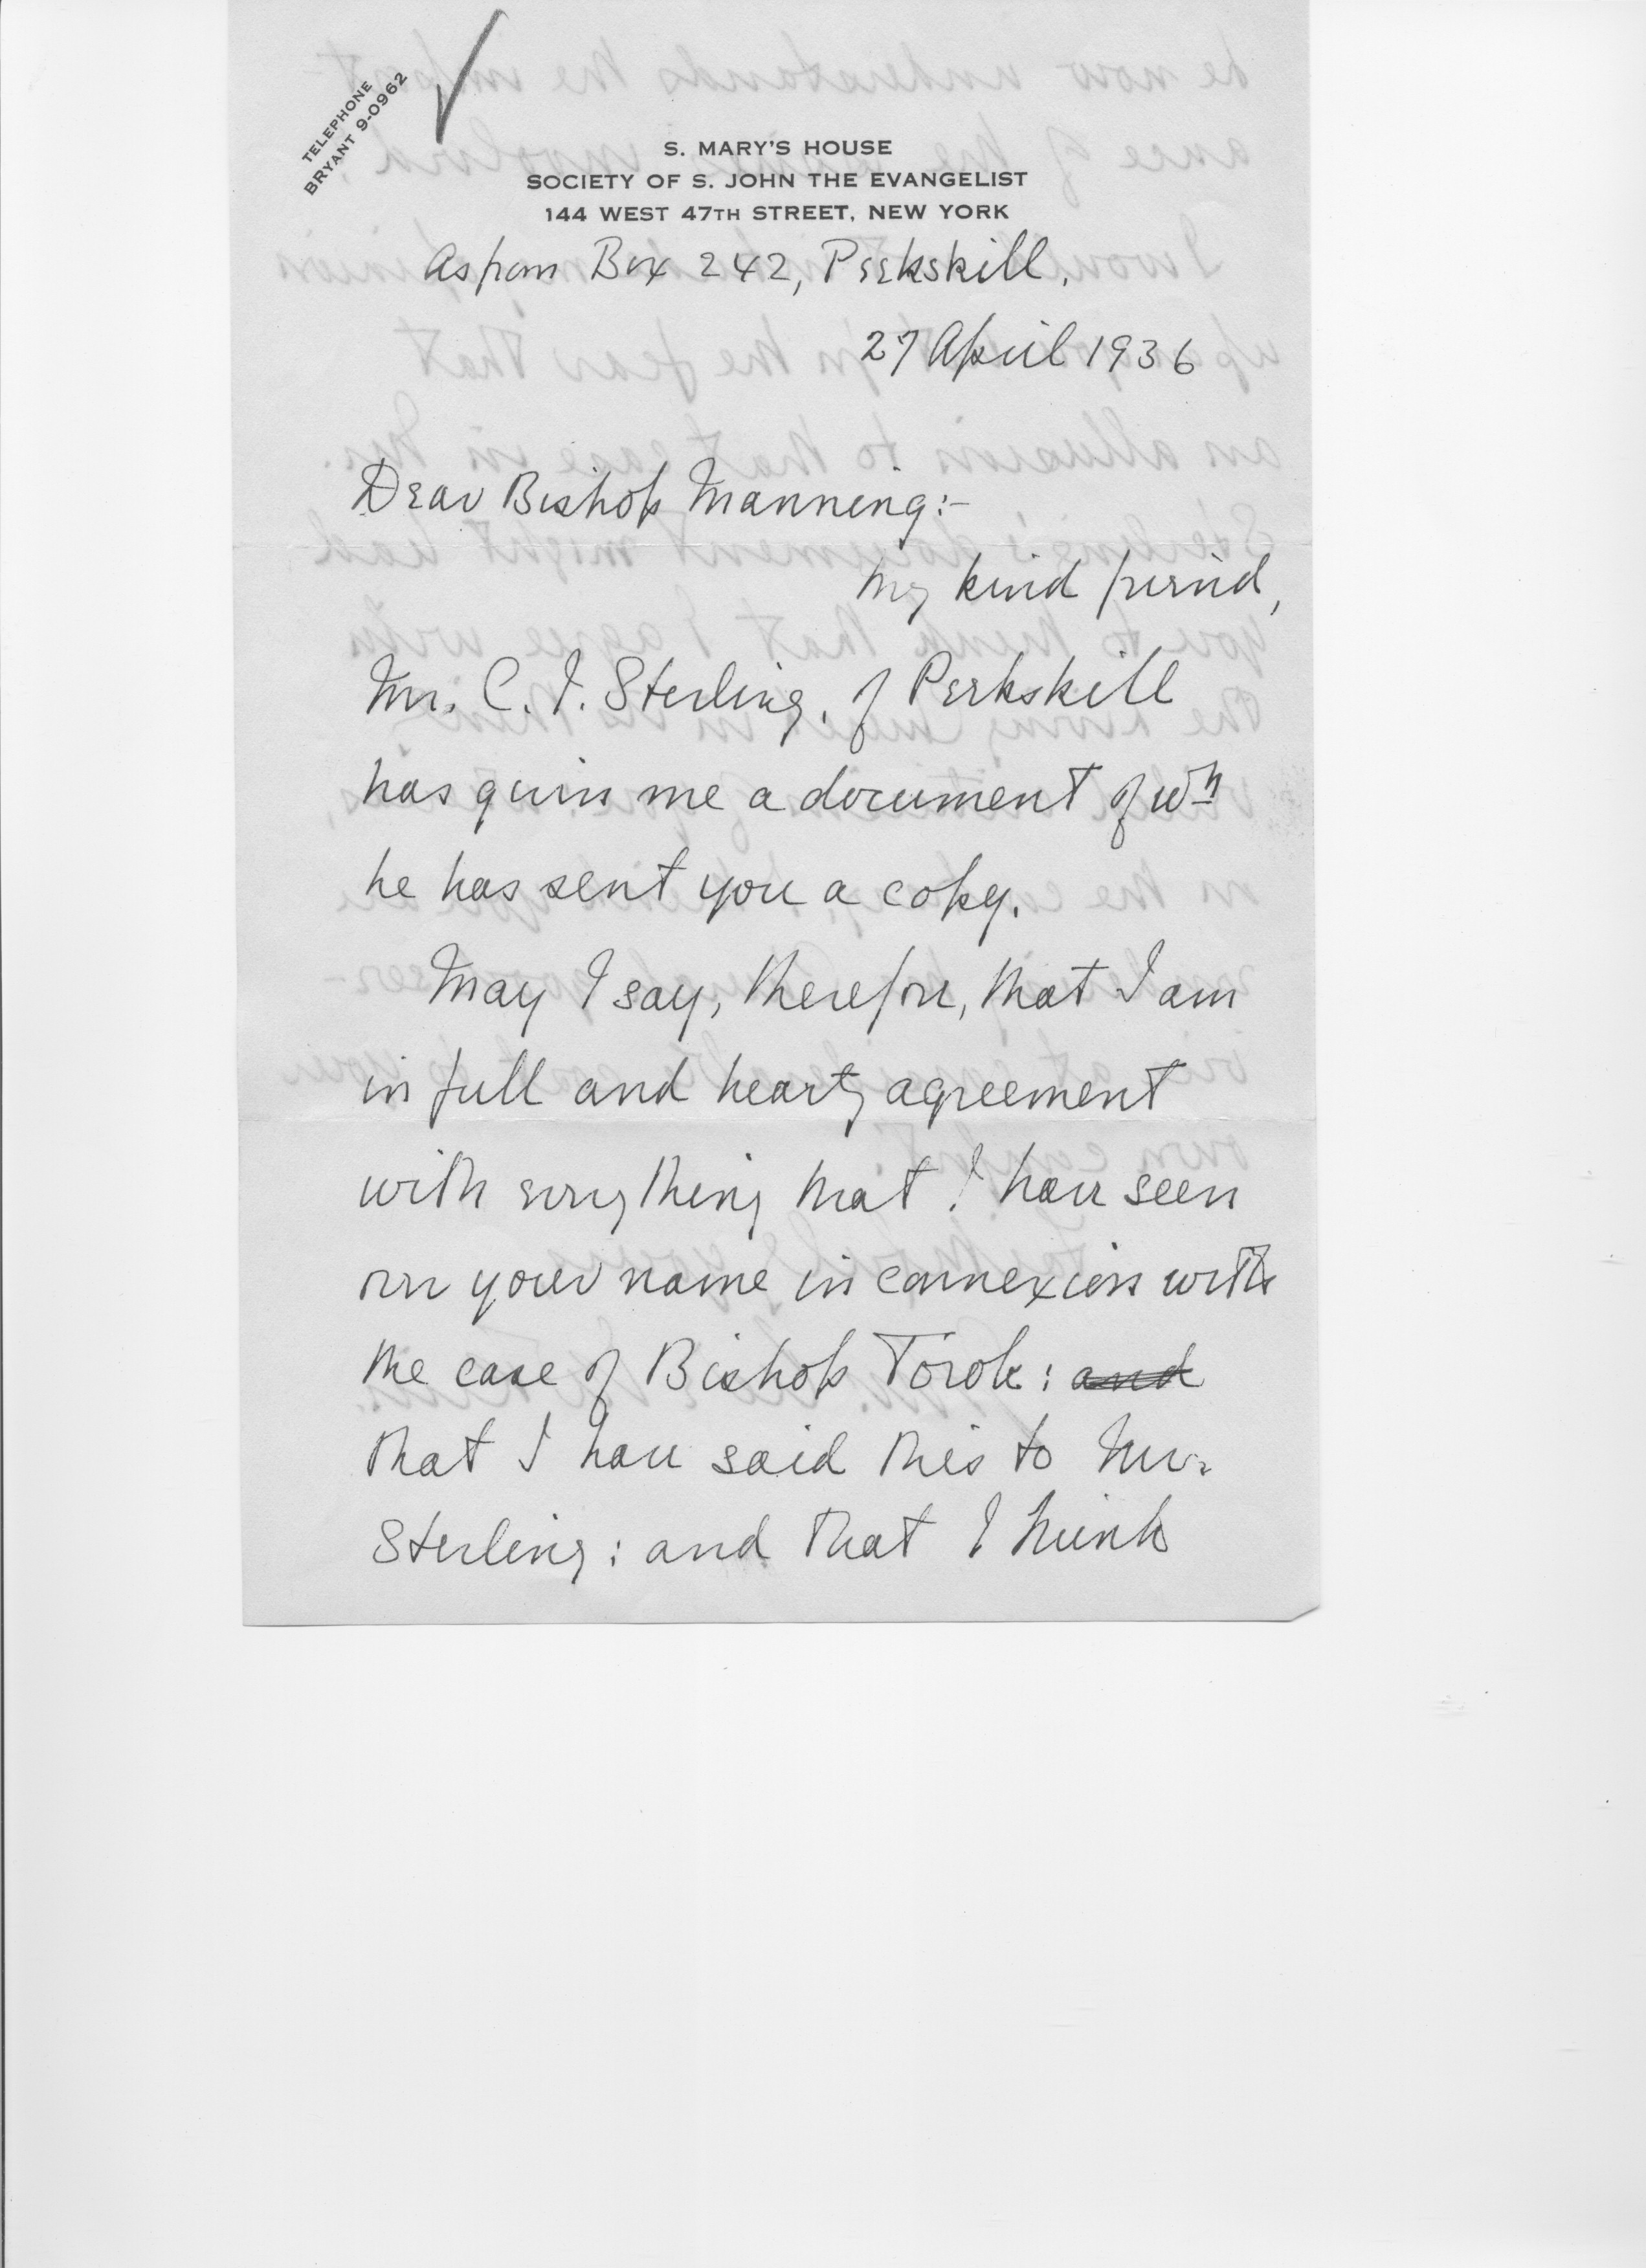 TELEPHONE
BRYANT 9-0962
S. MARY'S HOUSE
SOCIETY OF S. JOHN THE EVANGELIST
144 WEST 47TH STREET, NEW YORK
As from Box 242, Peekskill.
27 April 1936
Dear Bishop Manning:-
My kind friend,
Mr. C. I. Sterling, of Peekskill
has given me a document of wh
he has sent you a copy.
May I say, therefore, that I am
in full and hearty agreement
with everything that I have seen
over your name in connexion with
the case of Bishop Torok: and
that I have said this to Mr.
Sterling: and that I think